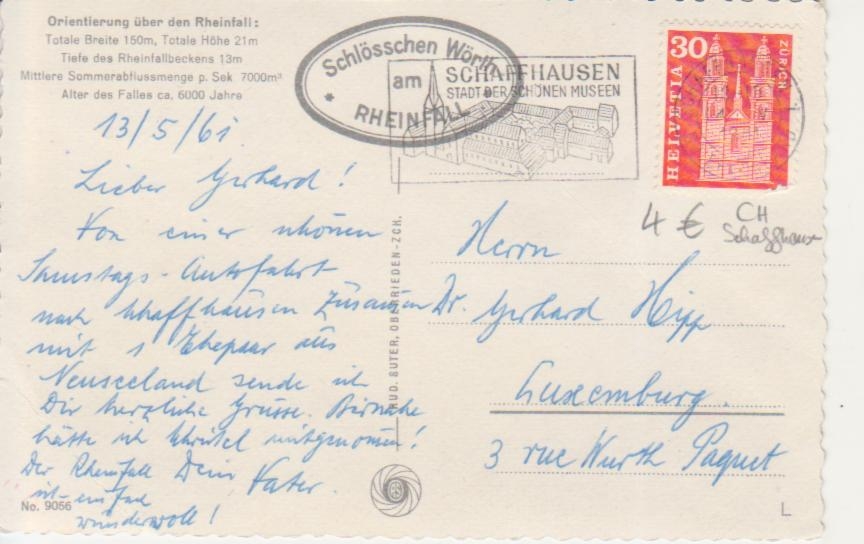 Orientierung über den Rheinfall:
Totale Breite 150m, Totale Höhe 21m
Tiefe des Rheinfallbeckens 13m
Mittlere Sommerabflussmenge p. Sek 7000m³
Alter des Falles ca. 6000 Jahre
Schlösschen Wörth
am
RHEINFALL
SCHAFFHAUSEN
STADT DER SCHÖNEN MUSEEN
30
HELVETIA
ZÜRICH
4 € CH
Schaffhausen
13/5/61.
Lieber Gerhard!
Von einer schönen
Samstags-Autofahrt
nach Schaffhausen zusammen
mit 1 Ehepaar aus
Neuseeland sende ich
Dir herzliche Grüsse. Beinahe
hätte ich Christel mitgenommen!
Der Rheinfall Dein Vater.
ist einfach
wundervoll!
Herrn
Dr. Gerhard Hipp
Luxemburg.
3 rue Wurth Paquet
RUD. SUTER, OBERRIEDEN-ZCH.
No. 9056
L